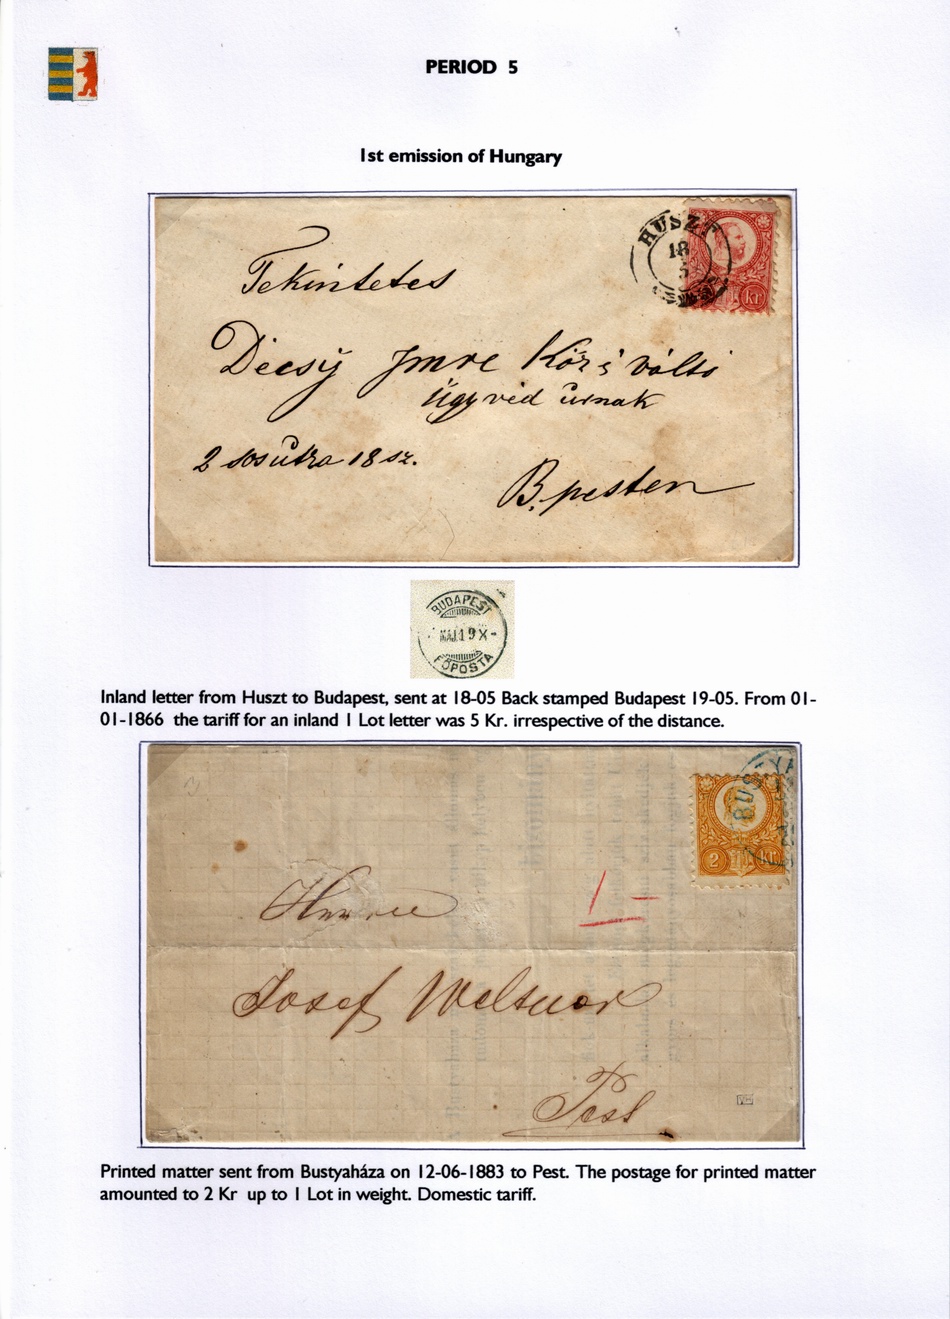 PERIOD 5
1st emission of Hungary
HUSZT
18
5
Kr
Tekintetes
Décsÿ Imre Köz s váltó
ügyvéd úrnak
2 sas útza 18 sz.
B.pesten
BUDAPEST
MÁJ 19 X-
FŐPOSTA
Inland letter from Huszt to Budapest, sent at 18-05 Back stamped Budapest 19-05. From 01-
01-1866 the tariff for an inland 1 Lot letter was 5 Kr. irrespective of the distance.
BUS
2 Kr
1-
Herrn
Josef
Pest
Printed matter sent from Bustyaháza on 12-06-1883 to Pest. The postage for printed matter
amounted to 2 Kr up to 1 Lot in weight. Domestic tariff.